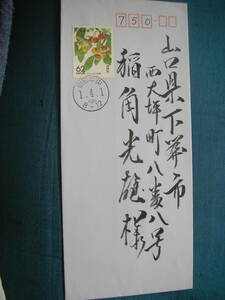 750
62
1.4.1
8-12
山口県下関市
西大坪町八番八号
稲角光雄様